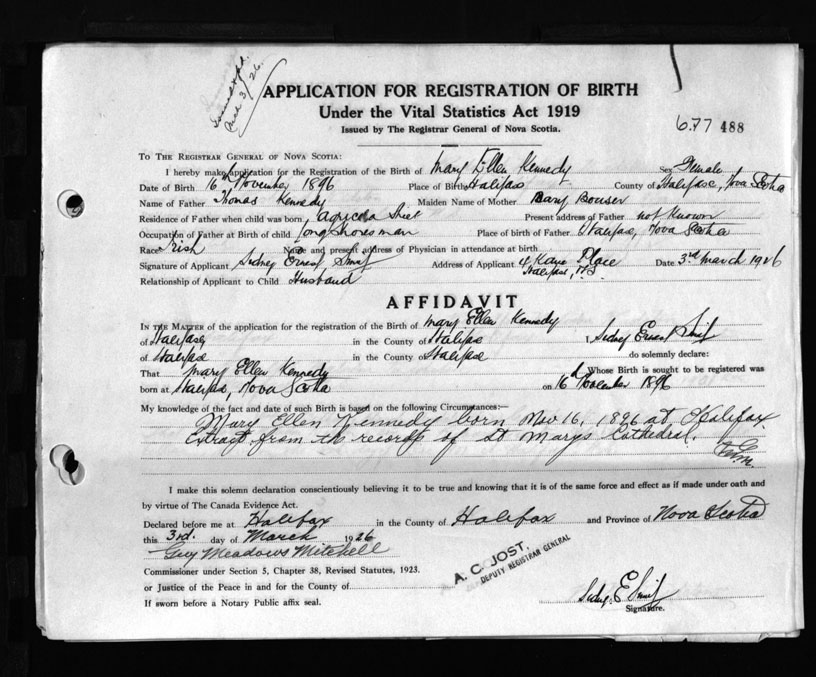 APPLICATION FOR REGISTRATION OF BIRTH
Under the Vital Statistics Act 1919
Issued by The Registrar General of Nova Scotia.
677 488
To The Registrar General of Nova Scotia:
I hereby make application for the Registration of the Birth of Mary Ellen Kennedy Sex Female
Date of Birth 16th November 1896 Place of Birth Halifax County of Halifax, Nova Scotia
Name of Father Thomas Kennedy Maiden Name of Mother Bouser
Residence of Father when child was born Agricola Present address of Father not known
Occupation of Father at Birth of child Longshoresman Place of birth of Father Halifax, Nova Scotia
Race Irish Name and present address of Physician in attendance at birth
Signature of Applicant Sidney Ernest Address of Applicant 4 Kaye Place Date 3rd March 1926
Halifax, N.S.
Relationship of Applicant to Child Husband
AFFIDAVIT
In the Matter of the application for the registration of the Birth of Mary Ellen Kennedy
of Halifax, in the County of Halifax I, Sidney Ernest
of Halifax in the County of Halifax do solemnly declare:
That Mary Ellen Kennedy Whose Birth is sought to be registered was
born at Halifax, Nova Scotia on 16th November 1896
My knowledge of the fact and date of such Birth is based on the following Circumstances:—
Mary Ellen Kennedy born Nov 16, 1896 at Halifax.
Extract from the records of St Marys Cathedral.
I make this solemn declaration conscientiously believing it to be true and knowing that it is of the same force and effect as if made under oath and
by virtue of The Canada Evidence Act.
Declared before me at Halifax in the County of Halifax and Province of Nova Scotia
this 3rd. day of March 1926
Guy Meadows Mitchell
A. C. JOST,
DEPUTY REGISTRAR GENERAL
Commissioner under Section 5, Chapter 38, Revised Statutes, 1923.
or Justice of the Peace in and for the County of
Sidney E
Signature.
If sworn before a Notary Public affix seal.